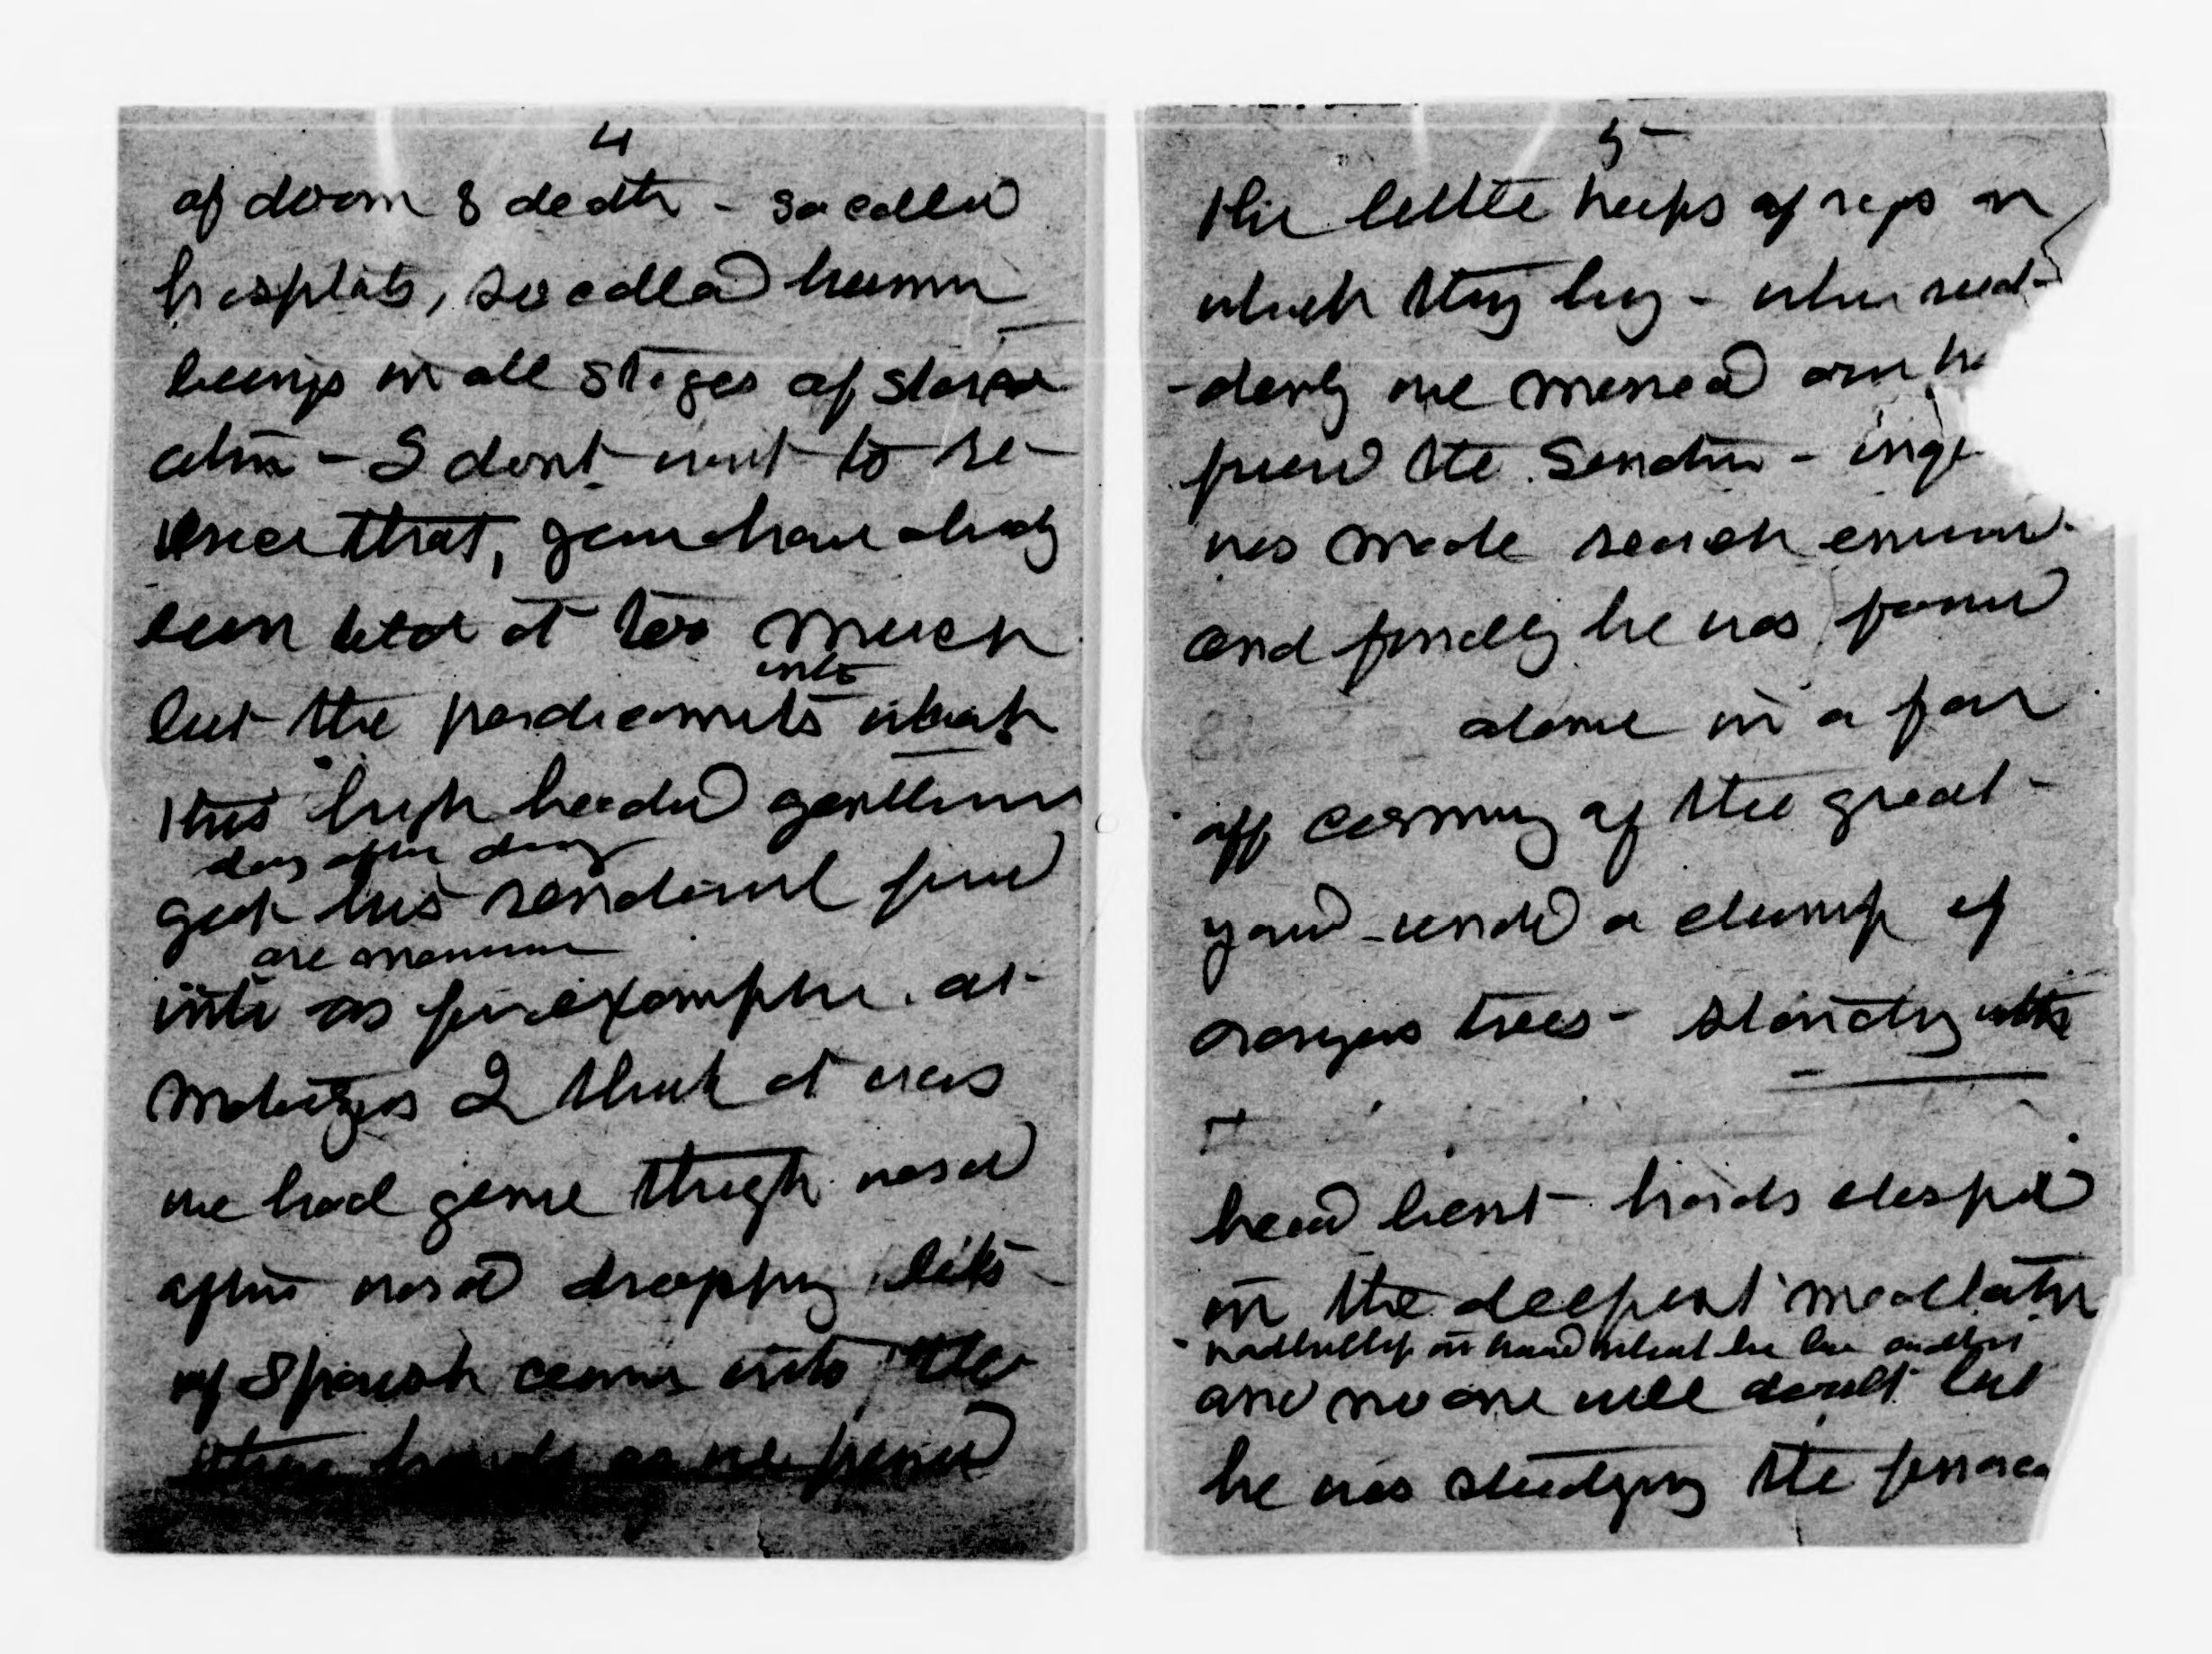 4
of doom & death - so called
hospitals, so called human
beings in all stages of starv
ation - I dont want to re-
that, you have already
been told it too much
into
but the predicaments which
this high headed gentleman
day after day
got his
one morning
into as for example. at
Matanzas I think it was
we had gone through ward
after ward dropping bits
of Spanish coins into the
thin hands as we passed
5
the little heaps of rags on
which they lay - when sud-
-denly we missed our
friend the Senator -
was made search ensued
and finally he was found
alone in a far
off corner of the great
yard under a clump of
oranges trees - standing with
head bent hands clasped
in the deepest meditation
and no one will doubt but
he was studying the